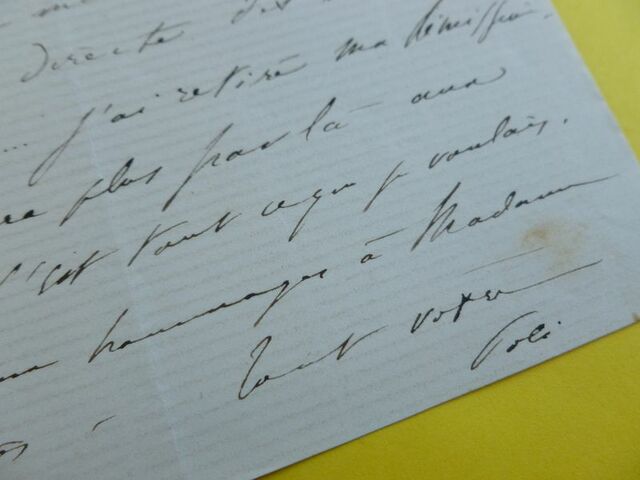 directe des
... J'ai retiré ma démission.
plus par là aux
C'est tout ce que je voulais.
hommages à Madame
Tout votre